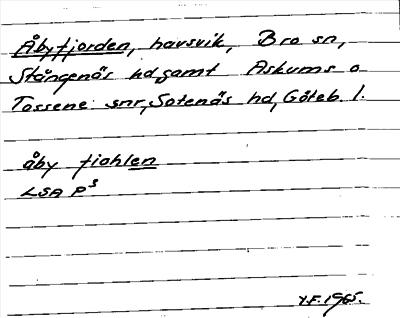 Åbyfjorden, havsvik, Bro sn,
Stångenäs hd samt Askums o
Tossene snr, Sotenäs hd, Göteb. l.
åby fiohlen
LSA P³
Y.F. 1965.